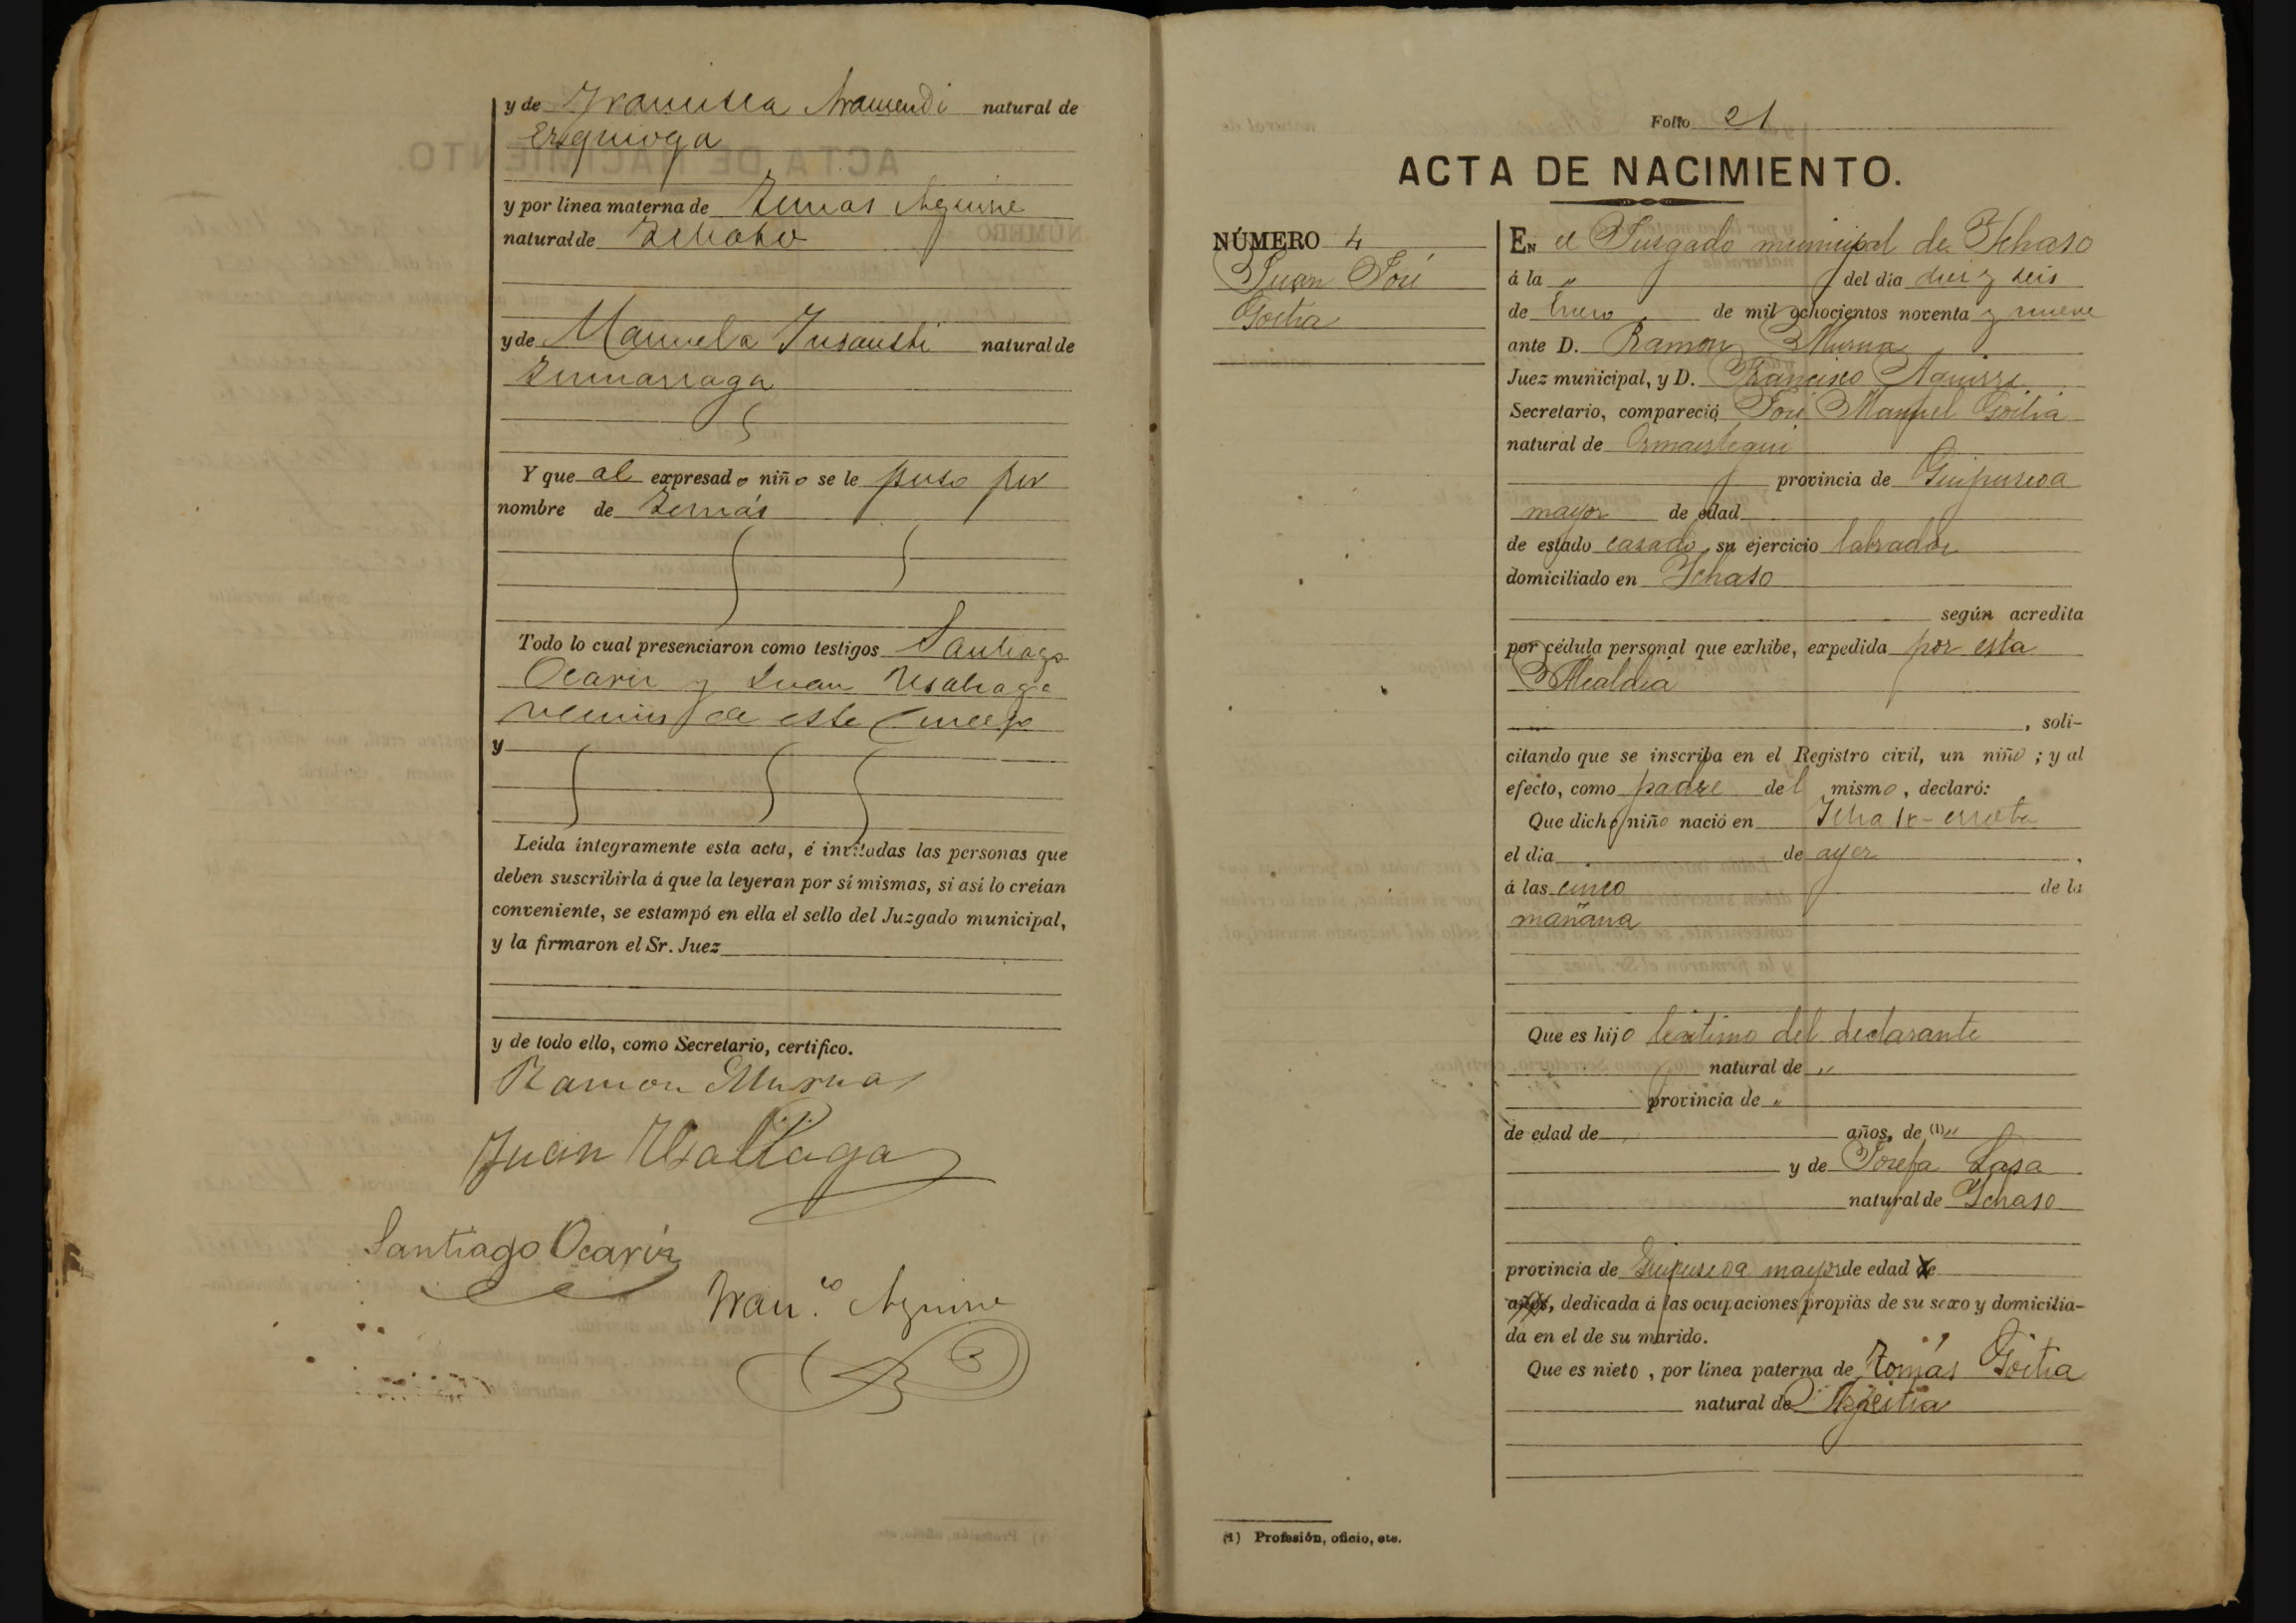 y de Francisca Aramendi natural de
Ezquioga
y por línea materna de Tomas Aguirre
natural de
y de Manuela Insausti natural de
Zumarraga
Y que al expresado niño se le puso por
nombre de Tomás
Todo lo cual presenciaron como testigos Santiago
Ocariz y Juan Usatiaga
vecinos de este Concejo
y
Leída íntegramente esta acta, é invitadas las personas que
deben suscribirla á que la leyeran por sí mismas, si así lo creían
conveniente, se estampó en ella el sello del Juzgado municipal,
y la firmaron el Sr. Juez
y de todo ello, como Secretario, certifico.
Ramon Murua
Juan Usatiaga
Santiago Ocariz
Fran.co Aguirre
Folio 21
ACTA DE NACIMIENTO.
NÚMERO 4
Juan José
Goitia
EN el Jusgado municipal de Ichaso
á la " del día diez y seis
de Enero de mil ochocientos noventa y nueve
ante D. Ramon Murua
Juez municipal, y D. Francisco Aguirre
Secretario, compareció José Manuel Goitia
natural de Ormaistegui
provincia de Guipuscoa
mayor de edad
de estado casado, su ejercicio labrador
domiciliado en Ichaso
según acredita
por cédula personal que exhibe, expedida por esta
Alcaldia
, soli-
citando que se inscriba en el Registro civil, un niño ; y al
efecto, como padre del mismo, declaró:
Que dicho niño nació en Ichaso-errota
el día de ayer .
á las cinco de la
mañana
Que es hijo legitimo del declarante
natural de "
provincia de "
de edad de años, de (1) "
y de Josefa Lasa
natural de Ichaso
provincia de Guipuscoa mayor de edad de
años, dedicada á las ocupaciones propias de su sexo y domicilia-
da en el de su marido.
Que es nieto , por línea paterna de Tomás Goitia
natural de Azpeitia
(1) Profesión, oficio, etc.